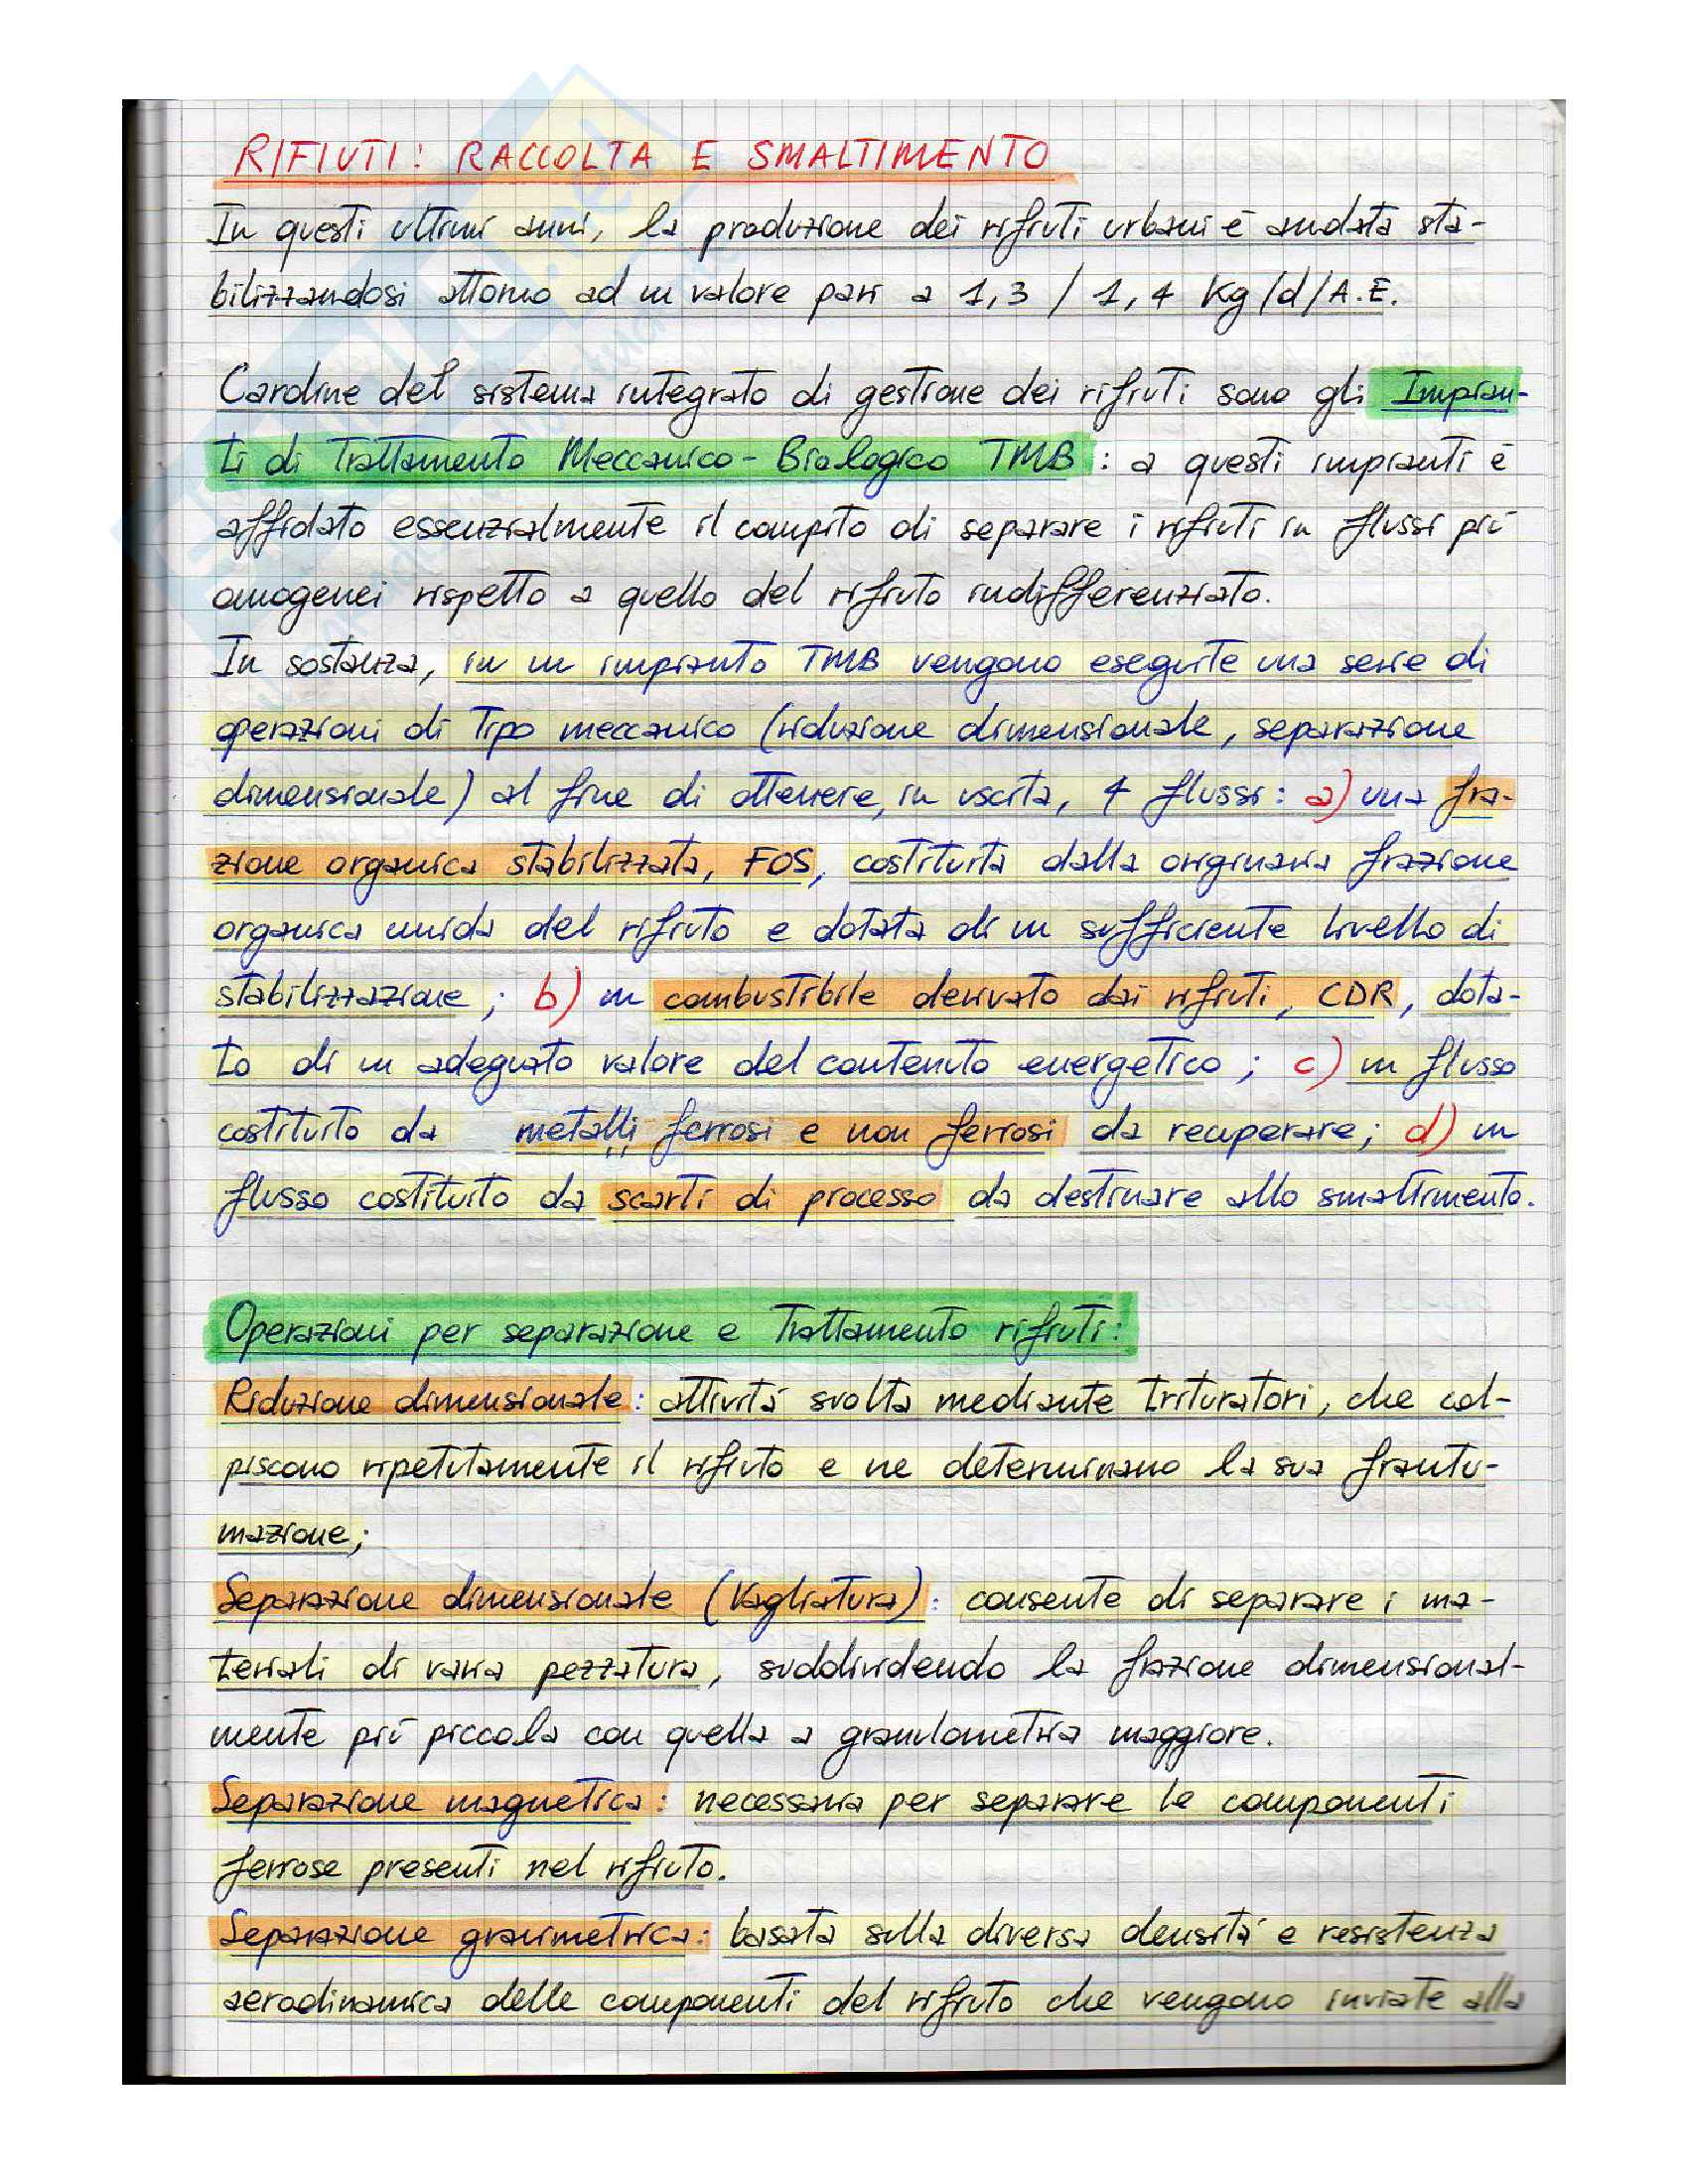 RIFIUTI: RACCOLTA E SMALTIMENTO
In questi ultimi anni, la produzione dei rifiuti urbani è andata sta-
bilizzandosi attorno ad un valore pari a 1,3 / 1,4 Kg/d/A.E.
Cardine del sistema integrato di gestione dei rifiuti sono gli Impian-
ti di Trattamento Meccanico-Biologico TMB : a questi impianti è
affidato essenzialmente il compito di separare i rifiuti in flussi più
omogenei rispetto a quello del rifiuto indifferenziato.
In sostanza, in un impianto TMB vengono eseguite una serie di
operazioni di tipo meccanico (riduzione dimensionale, separazione
dimensionale) al fine di ottenere, in uscita, 4 flussi: a) una fra-
zione organica stabilizzata, FOS, costituita dalla originaria frazione
organica umida del rifiuto e dotata di un sufficiente livello di
stabilizzazione ; b) un combustibile derivato dai rifiuti, CDR, dota-
to di un adeguato valore del contenuto energetico ; c) un flusso
costituito da metalli ferrosi e non ferrosi da recuperare; d) un
flusso costituito da scarti di processo da destinare allo smaltimento.
Operazioni per separazione e trattamento rifiuti:
Riduzione dimensionale: attività svolta mediante trituratori, che col-
piscono ripetutamente il rifiuto e ne determinano la sua frantu-
mazione;
Separazione dimensionale (Vagliatura): consente di separare i ma-
teriali di varia pezzatura, suddividendo la frazione dimensional-
mente più piccola con quella a granulometria maggiore.
Separazione magnetica: necessaria per separare le componenti
ferrose presenti nel rifiuto.
Separazione gravimetrica: basata sulla diversa densità e resistenza
aerodinamica delle componenti del rifiuto che vengono inviate alla